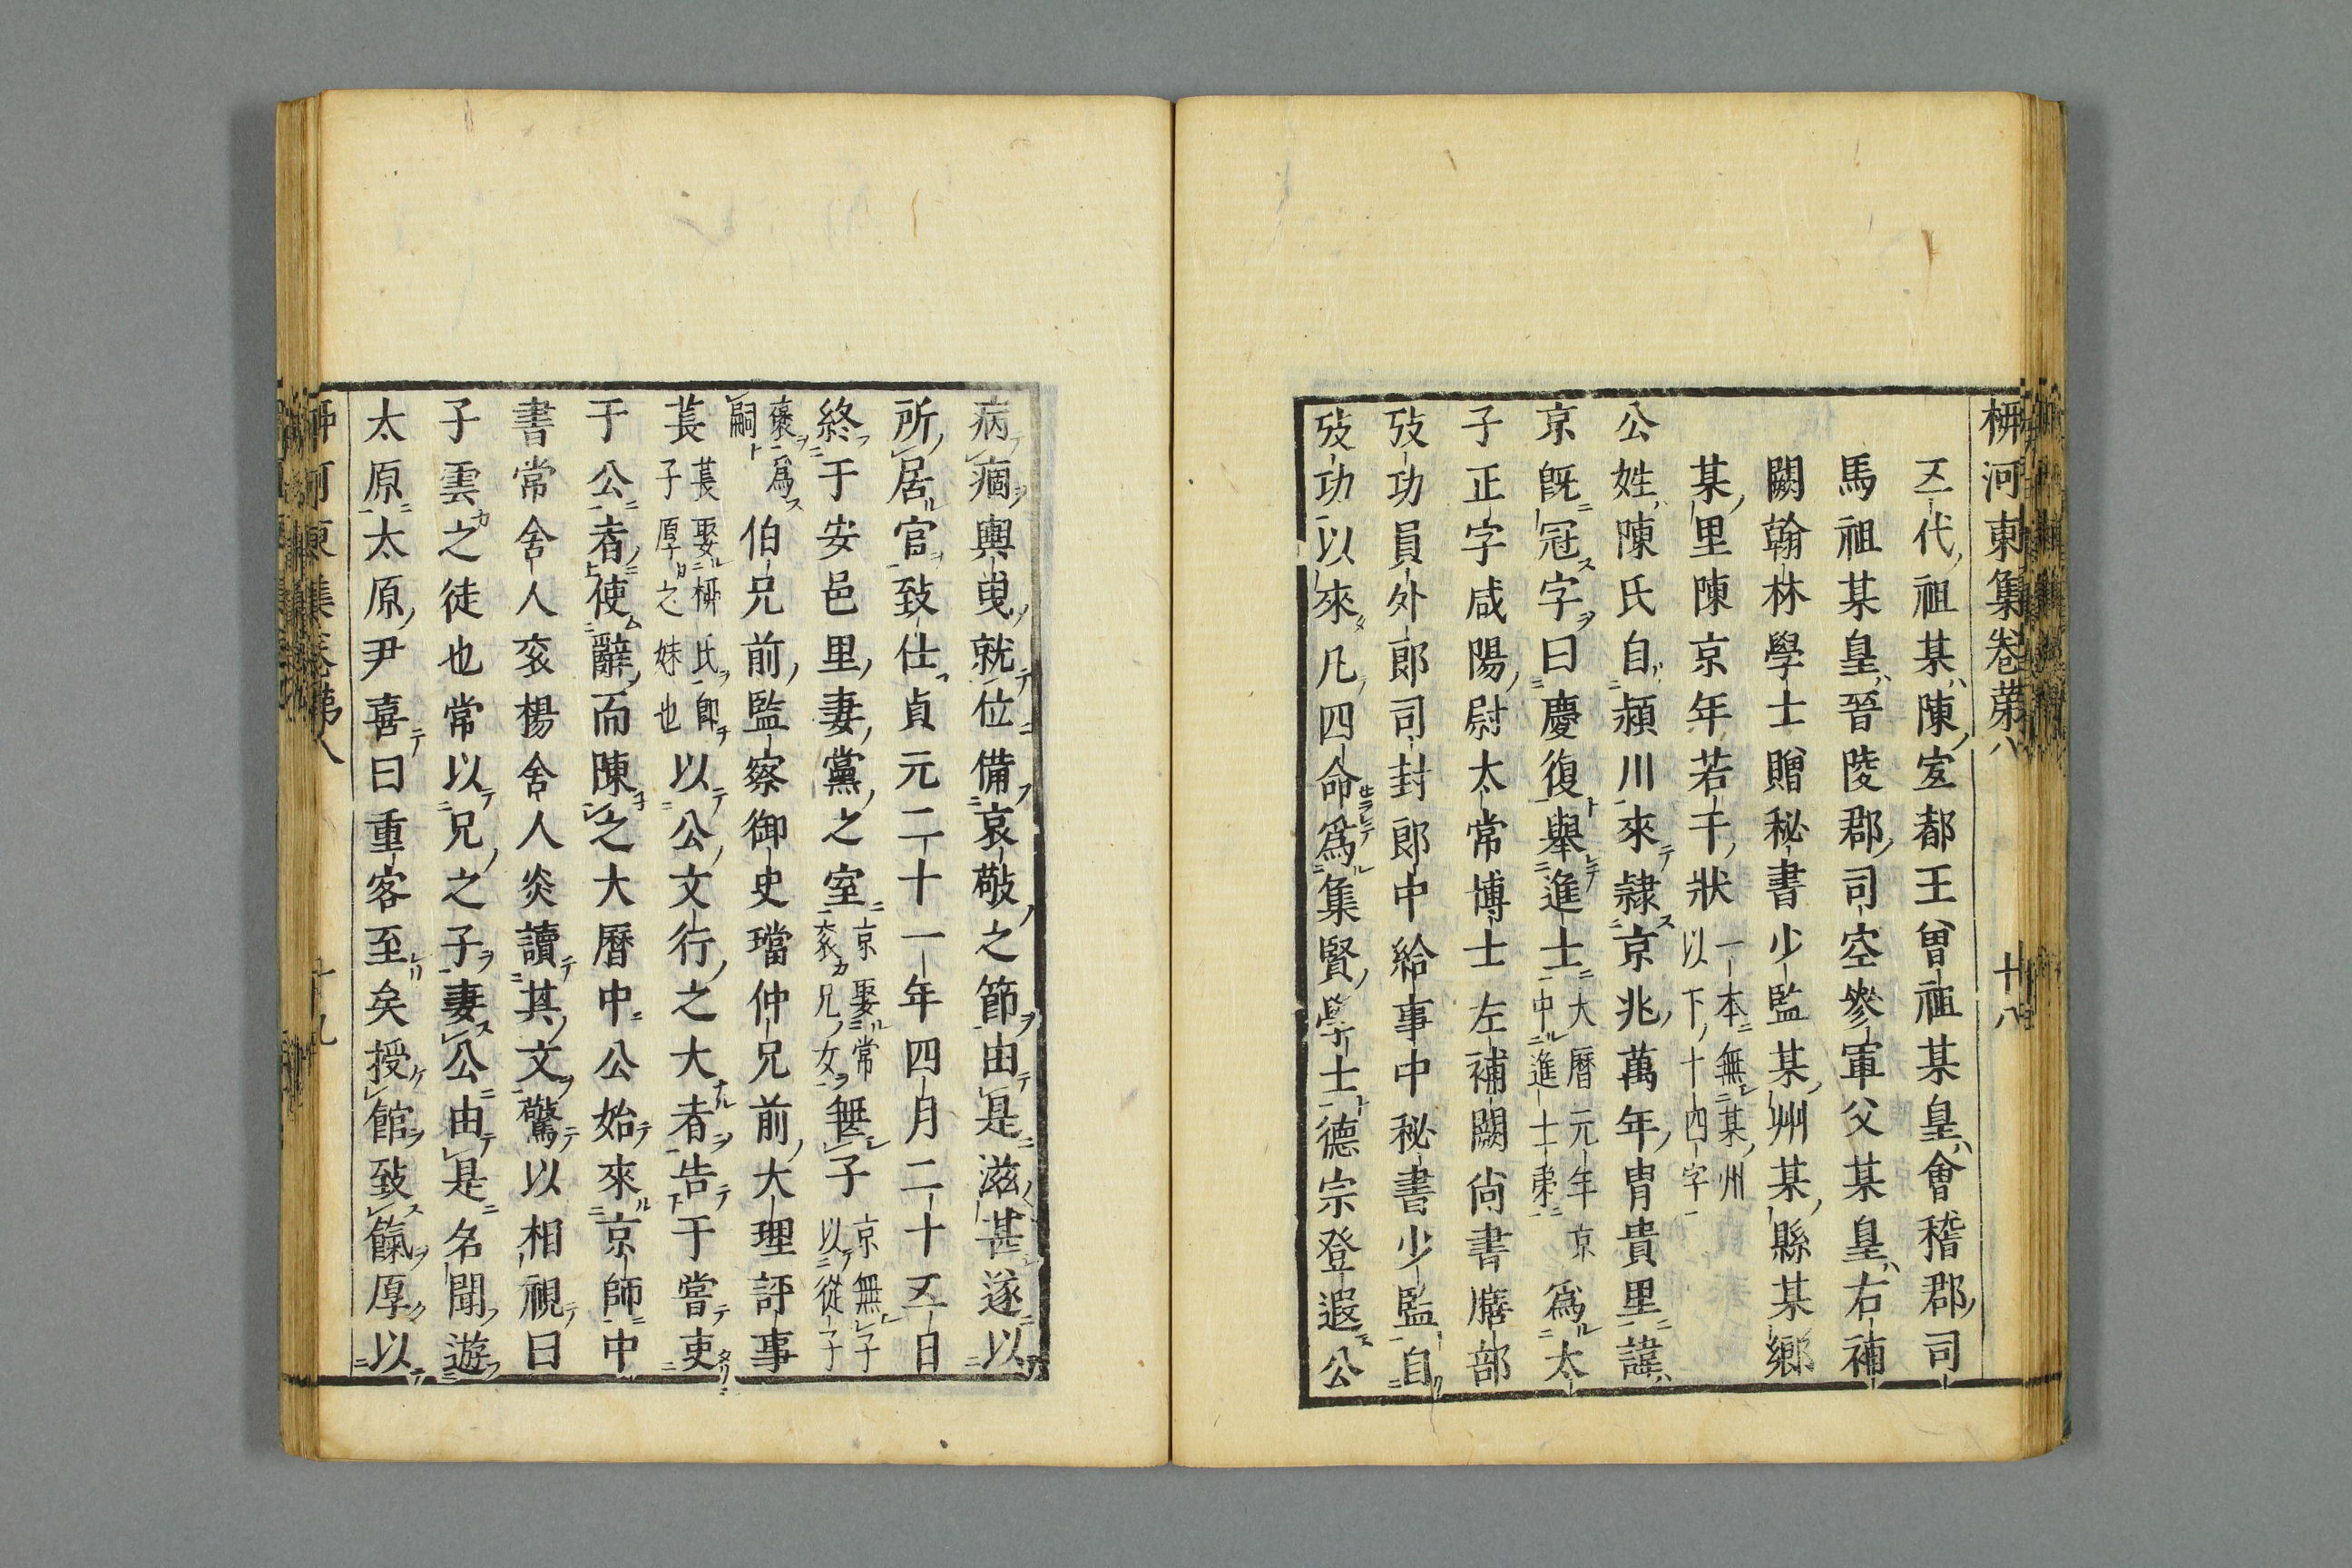 柳河東集卷第八 十八
五代祖某陳宜都王曾祖某皇會稽郡司
馬祖某皇晉陵郡司空參軍父某皇右補
闕翰林學士贈秘書少監某州某縣某鄉
某里陳京年若干狀一本無某州以下十四字
公姓陳氏自潁川來隷京兆萬年冑貴里諱
京旣冠字曰慶復舉進士大曆元年京中進士第爲太
子正字咸陽尉太常博士左補闕尚書膳部
攷功員外郎司封郎中給事中秘書少監自
攷功以來凡四命爲集賢學士德宗登遐公
病痼輿曳就位備哀敬之節由是滋甚遂以
所居官致仕貞元二十一年四月二十五日
終于安邑里妻黨之室京娶常袞兄女無子京無子以從子
褒爲嗣伯兄前監察御史璫仲兄前大理評事
萇萇娶柳氏即子厚之妹也以公文行之大者告于嘗吏
于公者使辭而陳之大曆中公始來京師中
書常舍人袞楊舍人炎讀其文驚以相視曰
子雲之徒也常以兄之子妻公由是名聞遊
太原太原尹喜曰重客至矣授館致餼厚以
柳河東集卷第八 十九